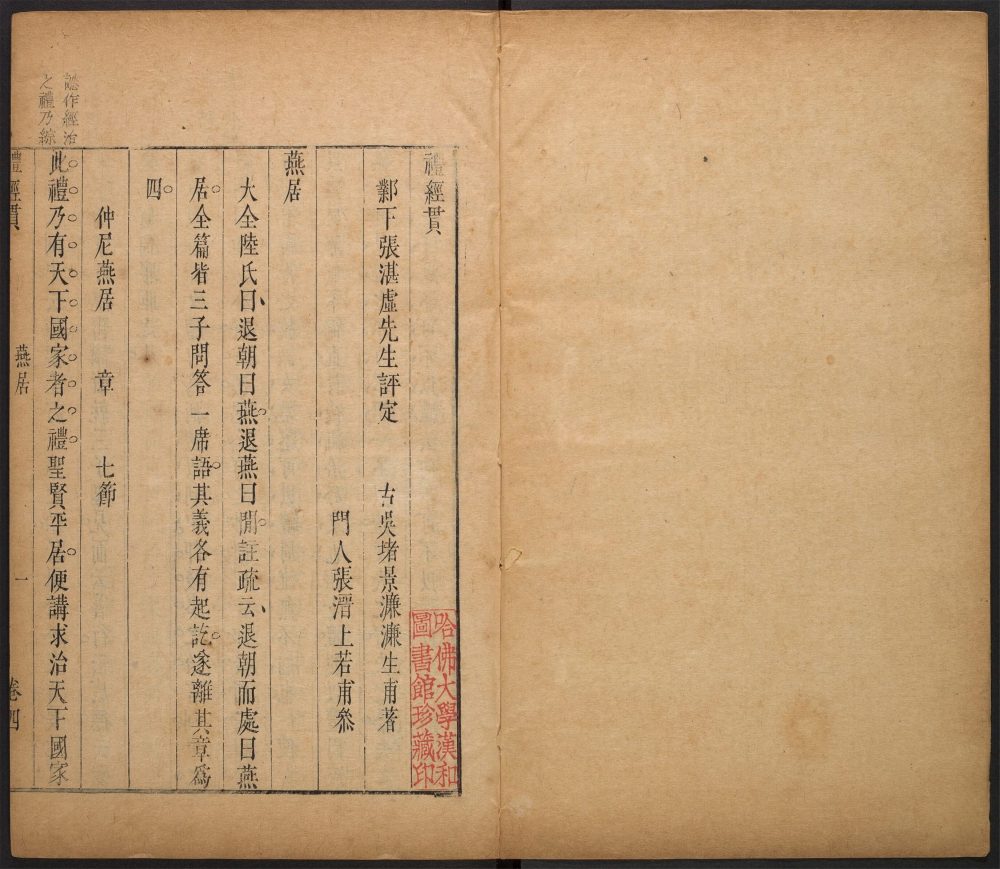 禮經貫
鄴下張湛虛先生評定 古吳堵景濂濂生甫著
門人張溍上若甫叅
燕居
大全陸氏曰退朝曰燕退燕曰閒註疏云退朝而處曰燕
居全篇皆三子問答一席語其義各有起訖遂離其章爲
四
仲尼燕居 章 七節
此禮乃有天下國家者之禮聖賢平居便講求治天下國家
作經治
之禮乃綜
禮經貫 燕居 一 卷四
哈佛大學漢和
圖書館珍藏印